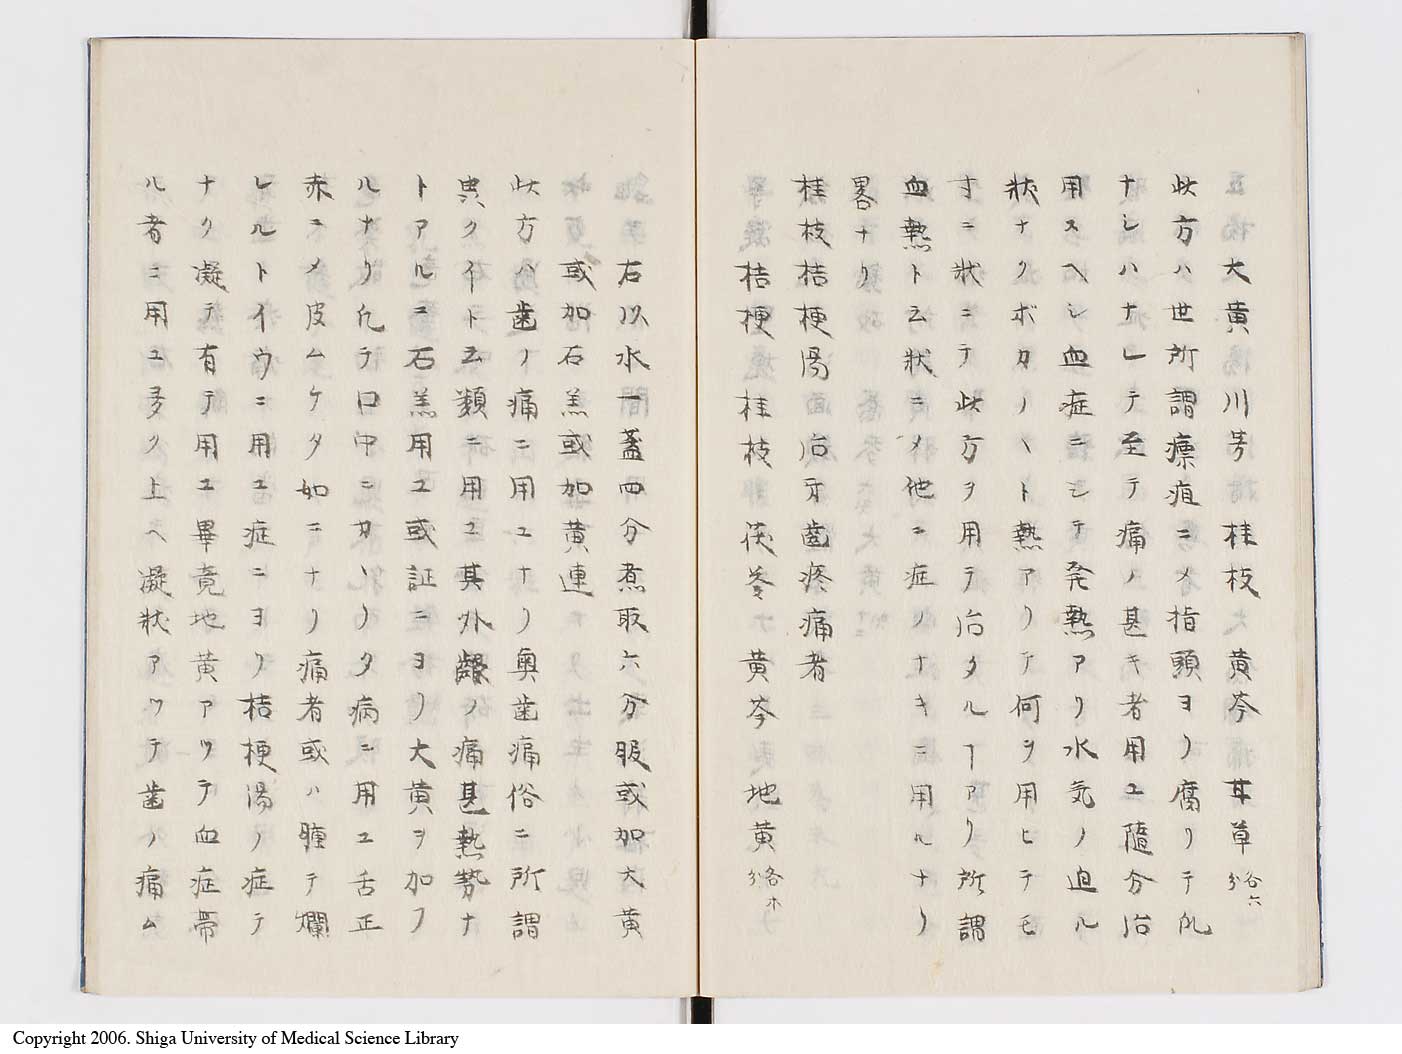 大黄 川芎 桂枝 大黄 黄芩 甘草 各六分
此方ハ世所謂瘭疽ニメ指頭ヨリ腐リテ爪
ナレハナレテ至テ痛ノ甚キ者用ユ随分治
用スヘシ血症ニシテ発熱アリ水気ノ迫ル
状ナクボカ〳〵ト熱アリテ何ヲ用ヒテモ
寸ニ状ニテ此方ヲ用テ治タルヿアリ所謂
血熱ト云状ニメ他ニ症ノナキニ用ルナリ
畧ナリ
桂枝桔梗湯 治牙齒疼痛者
桔梗 桂枝 茯苓 黄芩 地黄 各 分
右以水一盞四分煮取六分服或加大黄
或加石羔或加黄連
此方ハ歯ノ痛ニ用ユナリ奥歯痛俗ニ所謂
虫クイト云類ニ用ユ其外齦ノ痛甚熱勢ナ
トアルニ石羔用ユ或証ニヨリ大黄ヲ加フ
ルナリ凡テ口中ニカヽリタ病ニ用ユ舌正
赤ニメ皮ムケタ如ニナリ痛者或ハ腫テ爛
レルトイウニ用ユ症ニヨリ桔梗湯ノ症テ
ナク凝テ有テ用ユ畢竟地黄アツテ血症帯
ル者ニ用ユ多ク上ヘ凝状アツテ歯ノ痛ム
Copyright 2006. Shiga University of Medical Science Library